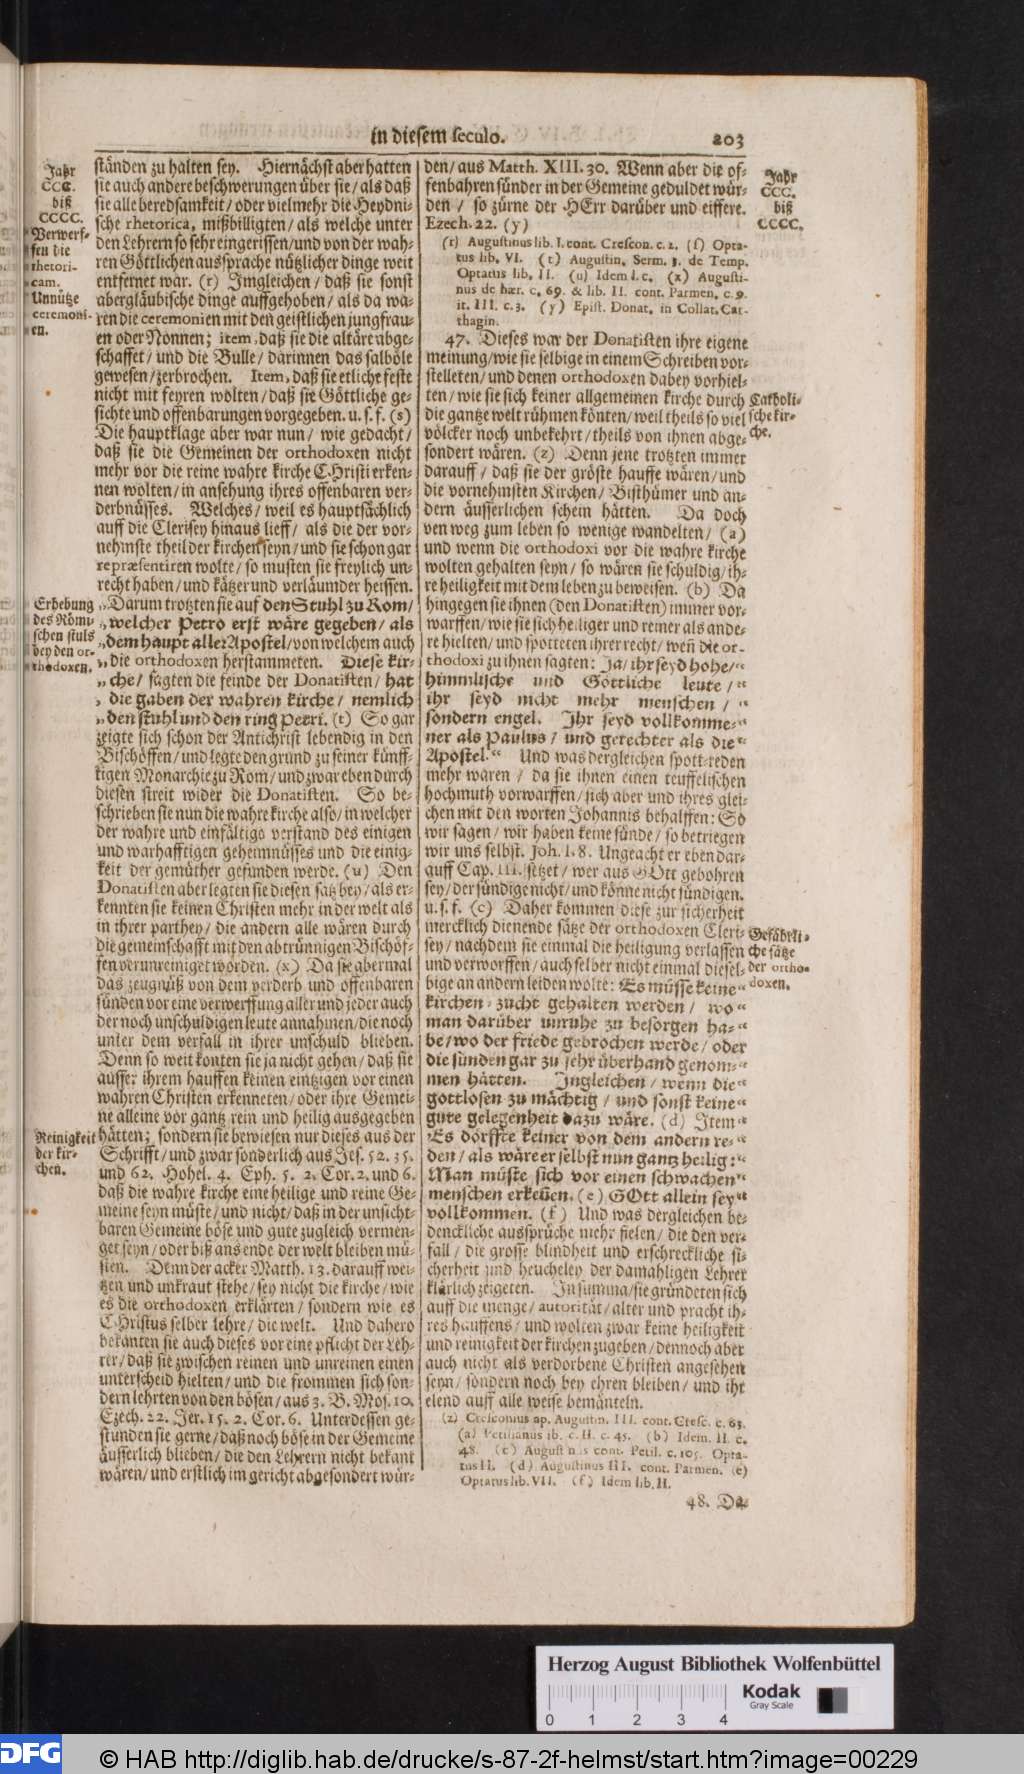 in diesem seculo.
203
Jahr
CCC.
biß
CCCC.
Verwerf-
fen die
rhetori-
cam.
Unnütze
ceremoni-
en.
ständen zu halten sey. Hiernächst aber hatten
sie auch andere beschwerungen über sie/ als daß
sie alle beredsamkeit/ oder vielmehr die Heydni-
sche rhetorica, mißbilligten/ als welche unter
den Lehrern so sehr eingerissen/ und von der wah-
ren Göttlichen aussprache nützlicher dinge weit
entfernet war. (r) Jmgleichen/ daß sie sonst
abergläubische dinge auffgehoben/ als da wa-
ren die ceremonien mit den geistlichen jungfrau-
en oder Nonnen; item, daß sie die altäre abge-
schaffet/ und die Bulle/ darinnen das salböle
gewesen/ zerbrochen. Item, daß sie etliche feste
nicht mit feyren wolten/ daß sie Göttliche ge-
sichte und offenbarungen vorgegeben. u. s. f. (s)
Die hauptklage aber war nun/ wie gedacht/
daß sie die Gemeinen der orthodoxen nicht
mehr vor die reine wahre kirche Christi erken-
nen wolten/ in ansehung ihres offenbaren ver-
derbnüsses. Welches/ weil es hauptsächlich
auff die Clerisey hinaus lieff/ als die der vor-
nehmste theil der kirchen seyn/ und sie schon gar
repræsentiren wolte/ so musten sie freylich un-
recht haben/ und kätzer und verläumder heissen.
Erhebung
des Römi-
schen stuls
bey den or-
thodoxen.
„Darum trotzten sie auf den Stuhl zu Rom/
„welcher Petro erst wäre gegeben/ als
„dem haupt aller Apostel/ von welchem auch
„die orthodoxen herstammeten. Diese kir-
„che/ sagten die feinde der Donatisten/ hat
„die gaben der wahren kirche/ nemlich
„den stuhl und den ring Petri. (t) So gar
zeigte sich schon der Antichrist lebendig in den
Bischöffen/ und legte den grund zu seiner künff-
tigen Monarchie zu Rom/ und zwar eben durch
diesen streit wider die Donatisten. So be-
schrieben sie nun die wahre kirche also/ in welcher
der wahre und einfältige verstand des einigen
und warhafftigen geheimnüsses und die einig-
keit der gemüther gefunden werde. (u) Den
Donatisten aber legten sie diesen satz bey/ als er-
kennten sie keinen Christen mehr in der welt als
in ihrer parthey/ die andern alle wären durch
die gemeinschafft mit den abtrünnigen Bischöf-
fen verunreiniget worden. (x) Da sie abermal
das zeugnüß von dem verderb und offenbaren
sünden vor eine verwerffung aller und jeder auch
der noch unschuldigen leute annahmen/ die noch
unter dem verfall in ihrer unschuld blieben.
Denn so weit konten sie ja nicht gehen/ daß sie
ausser ihrem hauffen keinen eintzigen vor einen
wahren Christen erkenneten/ oder ihre Gemei-
ne alleine vor gantz rein und heilig ausgegeben
Reinigkeit
der kir-
chen.
hätten; sondern sie bewiesen nur dieses aus der
Schrifft/ und zwar sonderlich aus Jes. 52. 35.
und 62. Hohel. 4. Eph. 5. 2. Cor. 2. und 6.
daß die wahre kirche eine heilige und reine Ge-
meine seyn müste/ und nicht/ daß in der unsicht-
baren Gemeine böse und gute zugleich vermen-
get seyn/ oder biß ans ende der welt bleiben mü-
sten. Denn der acker Matth. 13. darauff wei-
tzen und unkraut stehe/ sey nicht die kirche/ wie
es die orthodoxen erklärten/ sondern wie es
CHristus selber lehre/ die welt. Und dahero
bekanten sie auch dieses vor eine pflicht der Leh-
rer/ daß sie zwischen reinen und unreinen einen
unterscheid hielten/ und die frommen sich son-
dern lehrten von den bösen/ aus 3. B. Mos. 10.
Ezech. 22. Jer. 15. 2. Cor. 6. Unterdessen ge-
stunden sie gerne/ daß noch böse in der Gemeine
äusserlich blieben/ die den Lehrern nicht bekant
wären/ und erstlich im gericht abgesondert wür-
den/ aus Matth. XIII. 30. Wenn aber die of-
fenbahren sünder in der Gemeine geduldet wür-
den/ so zürne der HErr darüber und eiffere.
Ezech. 22. (y)
Jahr
CCC.
biß
CCCC.
(r) Augustinus lib. I. cont. Crescon. c. 2. (s) Opta-
tus lib. VI. (t) Augustin. Serm. 3. de Temp.
Optatus lib. II. (u) Idem l. c. (x) Augusti-
nus de hær. c. 69. & lib. II. cont. Parmen. c. 9.
it. III. c. 3. (y) Epist. Donat. in Collat. Car-
thagin.
47. Dieses war der Donatisten ihre eigene
meinung/ wie sie selbige in einem Schreiben vor-
stelleten/ und denen orthodoxen dabey vorhiel-
ten/ wie sie sich keiner allgemeinen kirche durch
die gantze welt rühmen könten/ weil theils so viel
völcker noch unbekehrt/ theils von ihnen abge-
sondert wären. (z) Denn jene trotzten immer
darauff/ daß sie der gröste hauffe wären/ und
die vornehmsten Kirchen/ Bisthümer und an-
dern äusserlichen schein hätten. Da doch
den weg zum leben so wenige wandelten/ (a)
und wenn die orthodoxi vor die wahre kirche
wolten gehalten seyn/ so wären sie schuldig/ ih-
re heiligkeit mit dem leben zu beweisen. (b) Da
hingegen sie ihnen (den Donatisten) immer vor-
warffen/ wie sie sich heiliger und reiner als ande-
re hielten/ und spotteten ihrer recht/ weñ die or-
thodoxi zu ihnen sagten: Ja/ ihr seyd hohe/“
himmlische und Göttliche leute/“
ihr seyd nicht mehr menschen/“
sondern engel. Jhr seyd vollkomme-“
ner als Paulus/ und gerechter als die“
Apostel.“ Und was dergleichen spott-reden
mehr waren/ da sie ihnen einen teuffelischen
hochmuth vorwarffen/ sich aber und ihres glei-
chen mit den worten Johannis behalffen: So
wir sagen/ wir haben keine sünde/ so betriegen
wir uns selbst. Joh. I. 8. Ungeacht er eben dar-
auff Cap. III. setzet/ wer aus GOtt gebohren
sey/ der sündige nicht/ und könne nicht sündigen.
u. s. f. (c) Daher kommen diese zur sicherheit
mercklich dienende sätze der orthodoxen Cleri-
sey/ nachdem sie einmal die heiligung verlassen
und verworffen/ auch selber nicht einmal diesel-
bige an andern leiden wolte: Es müsse keine“
kirchen-zucht gehalten werden/ wo“
man darüber unruhe zu besorgen ha-“
be/ wo der friede gebrochen werde/ oder
die sünden gar zu sehr überhand genom-“
men hätten. Jngleichen/ wenn die“
gottlosen zu mächtig/ und sonst keine“
gute gelegenheit dazu wäre. (d) Item“
Es dörffte keiner von dem andern re-“
den/ als wäre er selbst nun gantz heilig:“
Man müste sich vor einen schwachen“
menschen erkeñen. (e) GOtt allein sey“
vollkommen. (f) Und was dergleichen be-
denckliche aussprüche mehr fielen/ die den ver-
fall/ die grosse blindheit und erschreckliche si-
cherheit und heucheley der damahligen Lehrer
klärlich zeigeten. In summa/ sie gründeten sich
auff die menge/ autorität/ alter und pracht ih-
res hauffens/ und wolten zwar keine heiligkeit
und reinigkeit der kirchen zugeben/ dennoch aber
auch nicht als verdorbene Christen angesehen
seyn/ sondern noch bey ehren bleiben/ und ihr
elend auff alle weise bemänteln.
Catholi-
sche kir-
che.
Gefährli-
che sätze
der ortho-
doxen.
(z) Cresconius ap. Augustin. III. cont. Cresc. c. 63.
(a) Petilianus ib. c. II. c. 45. (b) Idem. II. c.
48. (c) Augustinus cont. Petil. c. 105. Opta-
tus II. (d) Augustinus III. cont. Parmen. (e)
Optatus lib. VII. (f) Idem lib. II.
48. Da
Herzog August Bibliothek Wolfenbüttel
0 1 2 3 4
Kodak
Gray Scale
DFG
© HAB http://diglib.hab.de/drucke/s-87-2f-helmst/start.htm?image=00229